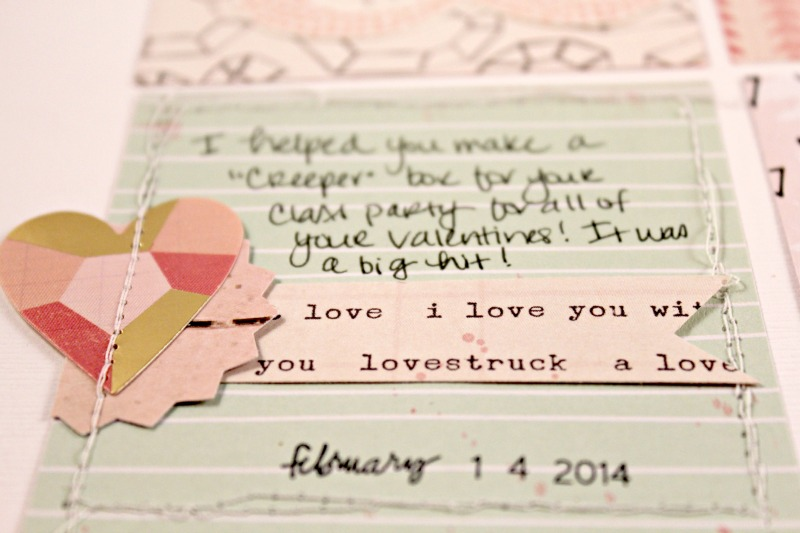 I helped you make a
"Creeper" box for your
class party for all of
your valentines! It was
a big hit!
love i love you wit
you lovestruck a love
february 14 2014